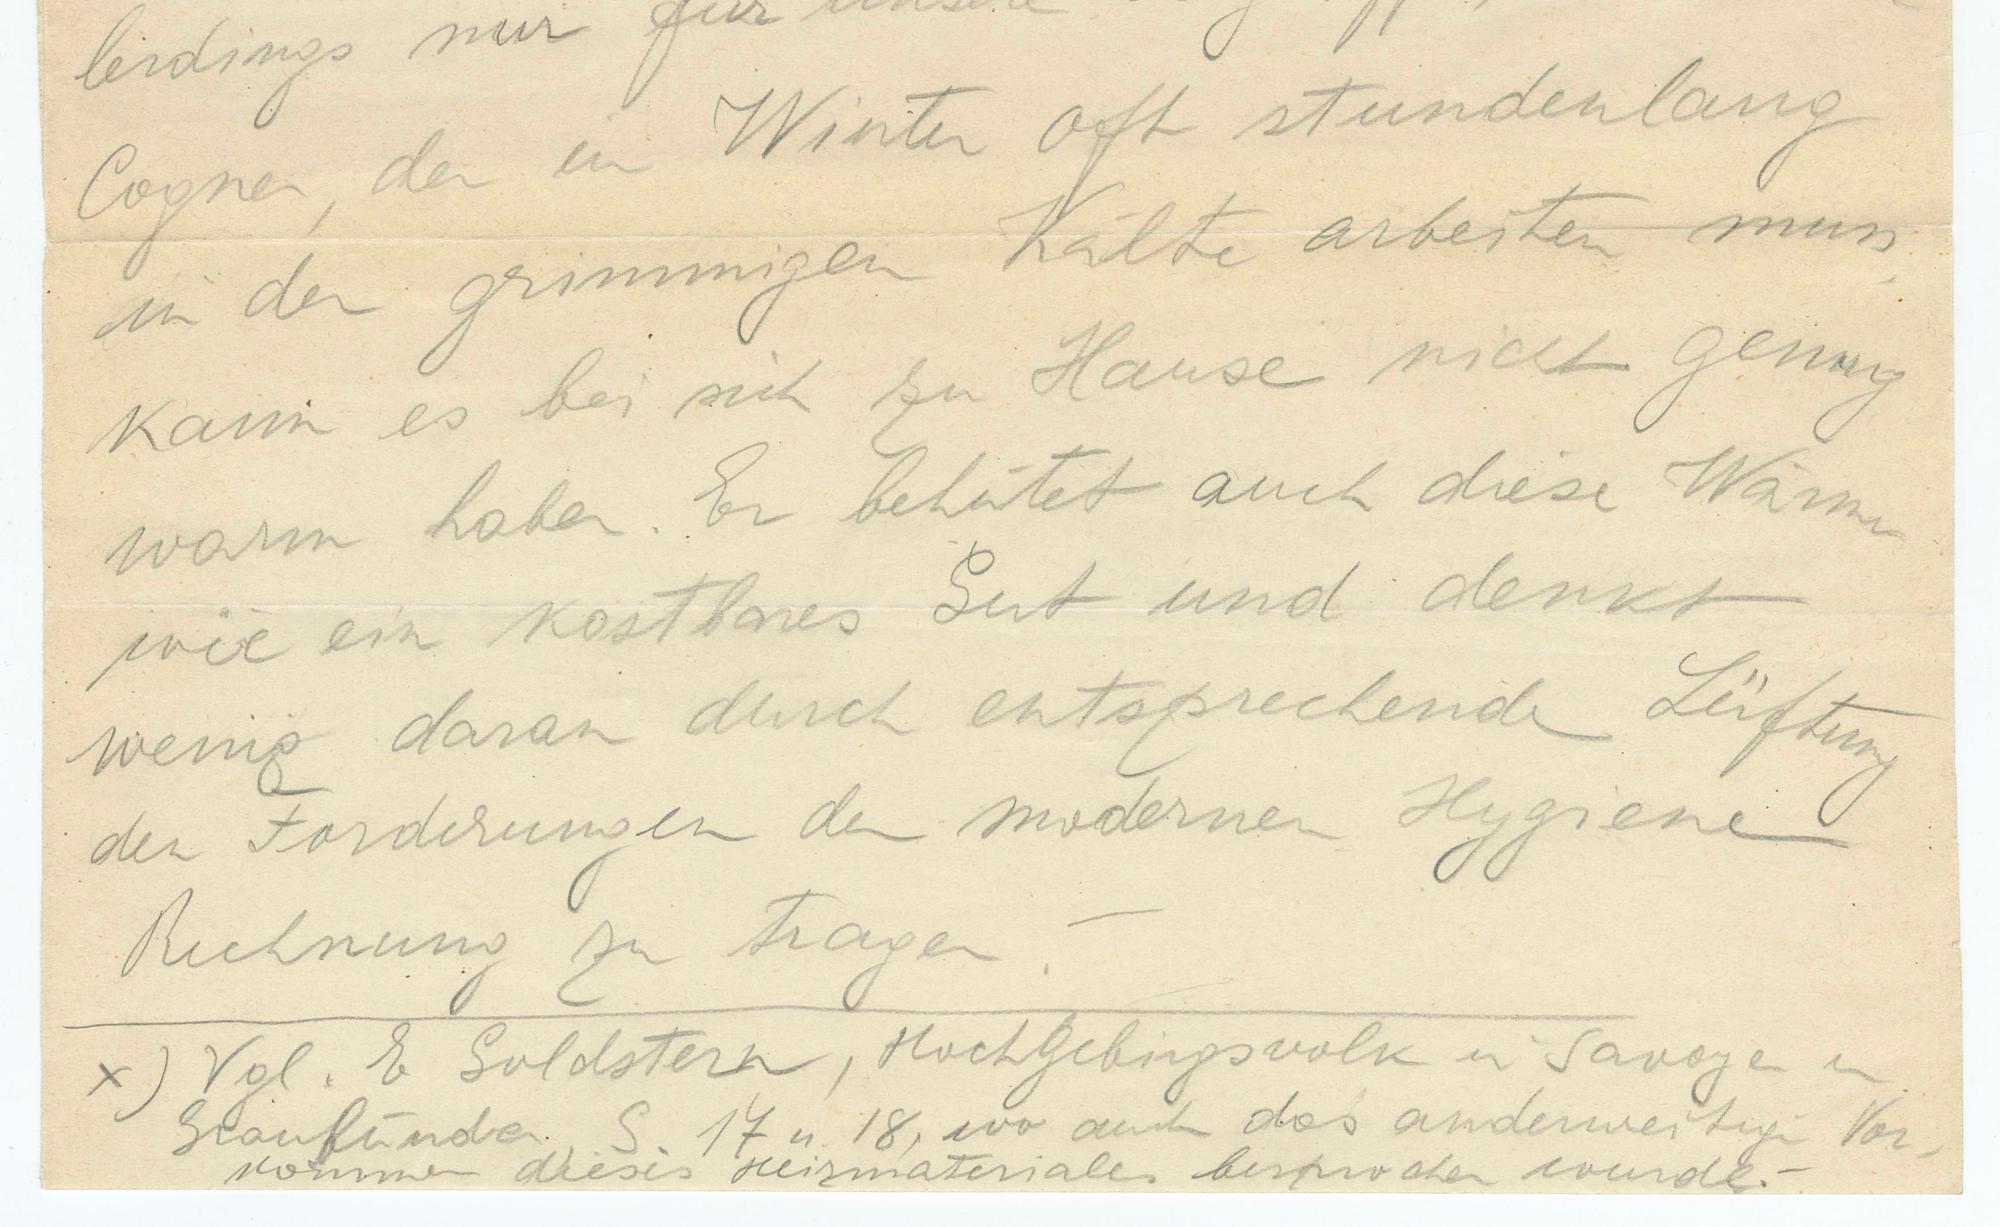 lerdings nur für unsere
Cogner, der im Winter oft stundenlang
in der grimmigen Kälte arbeiten muss,
kann es bei sich zu Hause nicht genug
warm haben. Er behütet auch diese Wärme
wie ein kostbares Gut und denkt
wenig daran durch entsprechende Lüftung
den Forderungen der modernen Hygiene
Rechnung zu tragen. –
x) Vgl. E Goldstern, Hochgebirgsvolk in Savoyen u
Graubünden. S. 17 u. 18, wo auch das anderweitige Vor-
kommen dieses Heizmateriales besprochen wurde. –